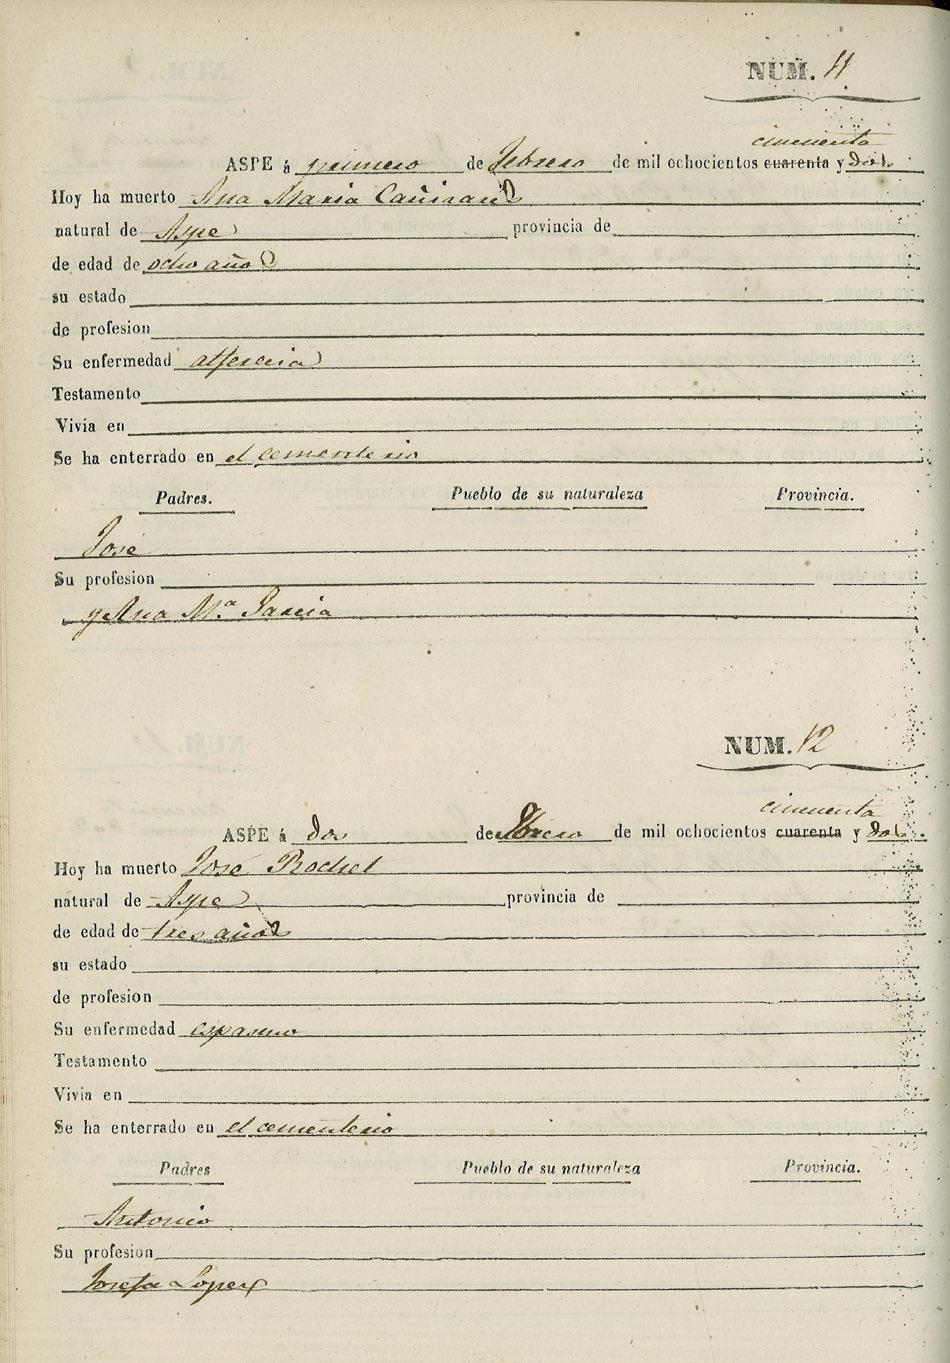 NUM. 11
cincuenta
ASPE á primero de Febrero de mil ochocientos cuarenta y dos.
Hoy ha muerto Ana Maria Cañizares
natural de Aspe provincia de
de edad de ocho años
su estado
de profesion
Su enfermedad alferecia
Testamento
Vivia en
Se ha enterrado en el cementerio
Padres. Pueblo de su naturaleza Provincia.
José
Su profesion
y Ana Mª Garcia
NUM. 12
cincuenta
ASPE á dos de Febrero de mil ochocientos cuarenta y dos.
Hoy ha muerto José Rochel
natural de Aspe provincia de
de edad de tres años
su estado
de profesion
Su enfermedad espasmo
Testamento
Vivia en
Se ha enterrado en el cementerio
Padres Pueblo de su naturaleza Provincia.
Antonio
Su profesion
Josefa Lopez